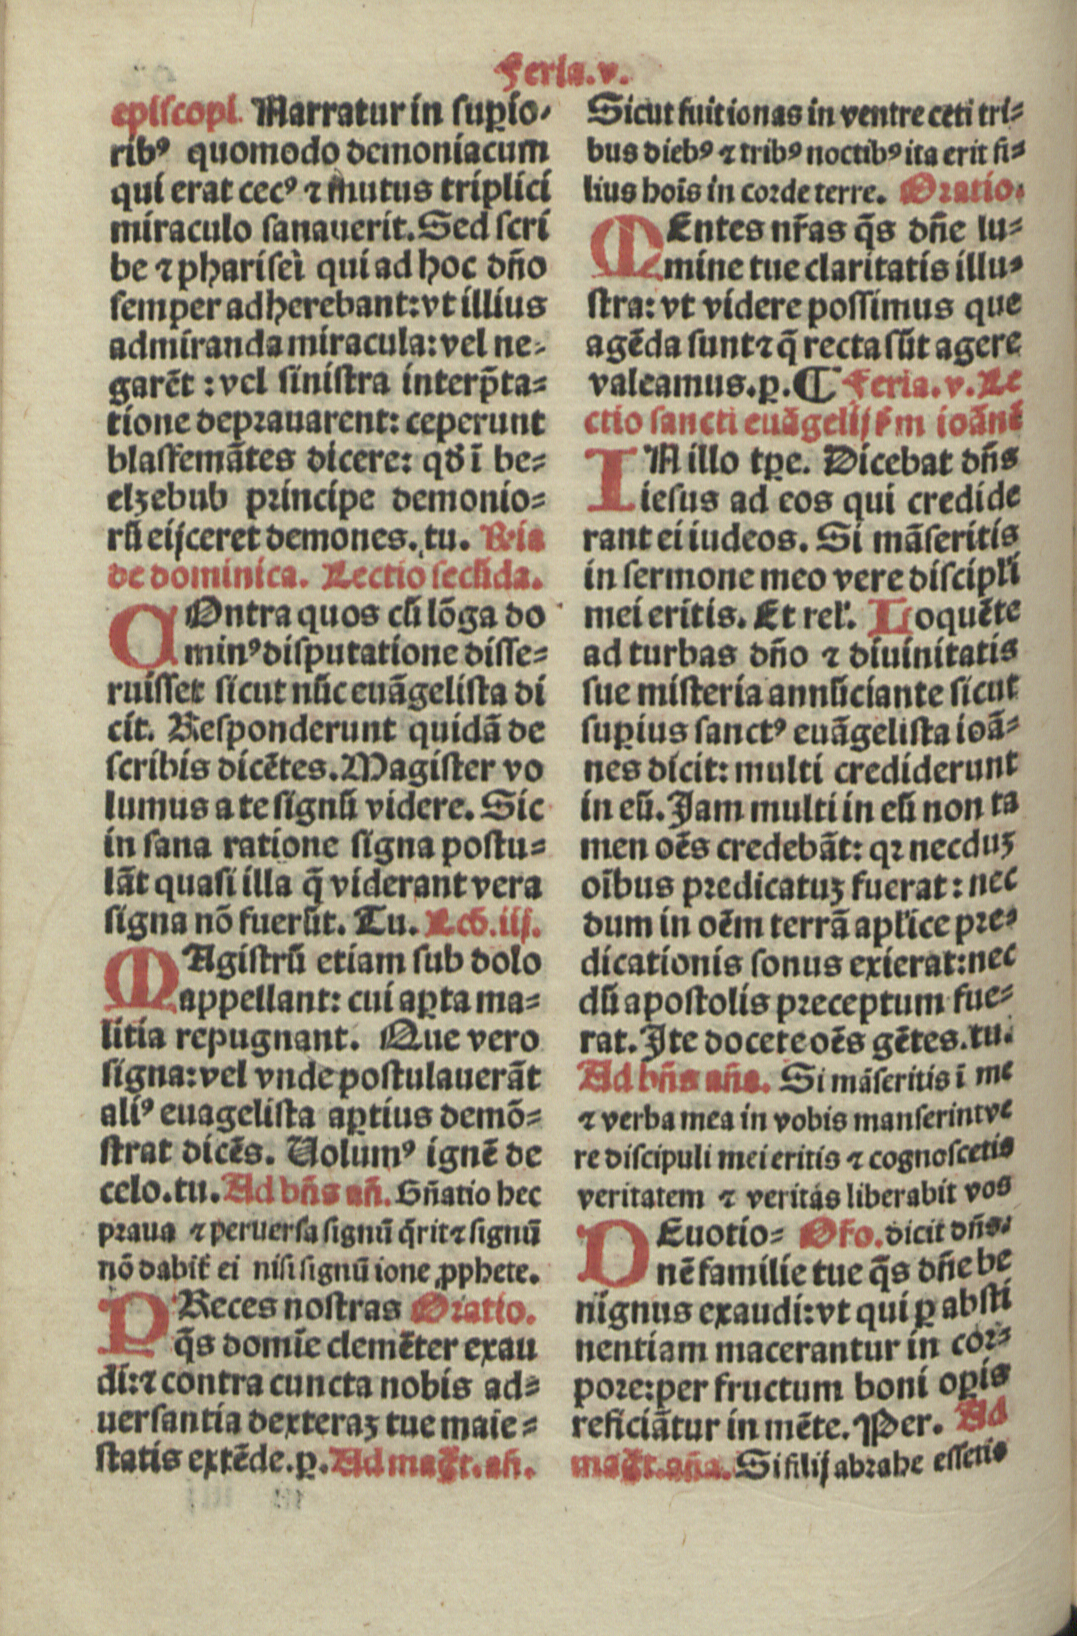 Feria.v.
episcopi. Narratur in supio-
ribꝰ quomodo demoniacum
qui erat cecꝰ ⁊ mutus triplici
miraculo sanauerit. Sed scri
be ⁊ pharisei qui ad hoc dño
semper adherebant: vt illius
admiranda miracula: vel ne-
garēt : vel sinistra interp̄ta-
tione deprauarent: ceperunt
blasfemātes dicere: qđ ī be-
elzebub principe demonio-
rū eijceret demones. tu. R̄ia
de dominica. Lectio secūda.
COntra quos cū lōga do
minꝰ disputatione disse-
ruisset sicut nūc euāgelista di
cit. Responderunt quidā de
scribis dicētes. Magister vo
lumus a te signū videre. Sic
in sana ratione signa postu-
lāt quasi illa q̄ viderant vera
signa nō fuerūt. Tu. Lcō.iij.
MAgistrū etiam sub dolo
appellant: cui aꝑta ma-
litia repugnant. Que vero
signa: vel vnde postulauerāt
aliꝰ euagelista aꝑtius demō-
strat dicēs. Uolumꝰ ignē de
celo. tu. Ad bñs añ. Gñatio hec
praua ⁊ peruersa signū q̄rit ⁊ signū
nō dabit̄ ei nisi signū ione ꝓphete.
PReces nostras Oratio.
q̄s domīe clemēter exau
di: ⁊ contra cuncta nobis ad-
uersantia dexteraꝫ tue maie-
statis extēde. ꝑ. Ad magt̄. añ.
Sicut fuit ionas in ventre ceti tri-
bus diebꝰ ⁊ tribꝰ noctibꝰ ita erit fi-
lius hoīs in corde terre. Oratio.
MEntes nr̄as q̄s dñe lu-
mine tue claritatis illu-
stra: vt videre possimus que
agēda sunt ⁊ q̄ recta sūt agere
valeamus. ꝑ. ¶ Feria.v. Le
ctio sancti euāgelij s̄m ioānē
IN illo tꝑe. Dicebat dñs
iesus ad eos qui credide
rant ei iudeos. Si māseritis
in sermone meo vere discipłi
mei eritis. Et rel̄. Loquēte
ad turbas dño ⁊ diuinitatis
sue misteria annūciante sicut
suꝑius sanctꝰ euāgelista ioā-
nes dicit: multi crediderunt
in eū. Jam multi in eū non ta
men oēs credebāt: qꝛ necduꝫ
oībus predicatuꝫ fuerat: nec
dum in oēm terrā apłice pre-
dicationis sonus exierat: nec
dū apostolis preceptum fue-
rat. Ite docete oēs gētes. tu.
Ad bñs aña. Si māseritis ī me
⁊ verba mea in vobis manserint ve
re discipuli mei eritis ⁊ cognoscetis
veritatem ⁊ veritas liberabit vos
DEuotio- Or̄o. dicit dñs.
nē familie tue q̄s dñe be
nignus exaudi: vt qui ꝑ absti
nentiam macerantur in cor-
pore: per fructum boni oꝑis
reficiātur in mēte. Per. Ad
magt̄. aña. Si filij abrahe essetis